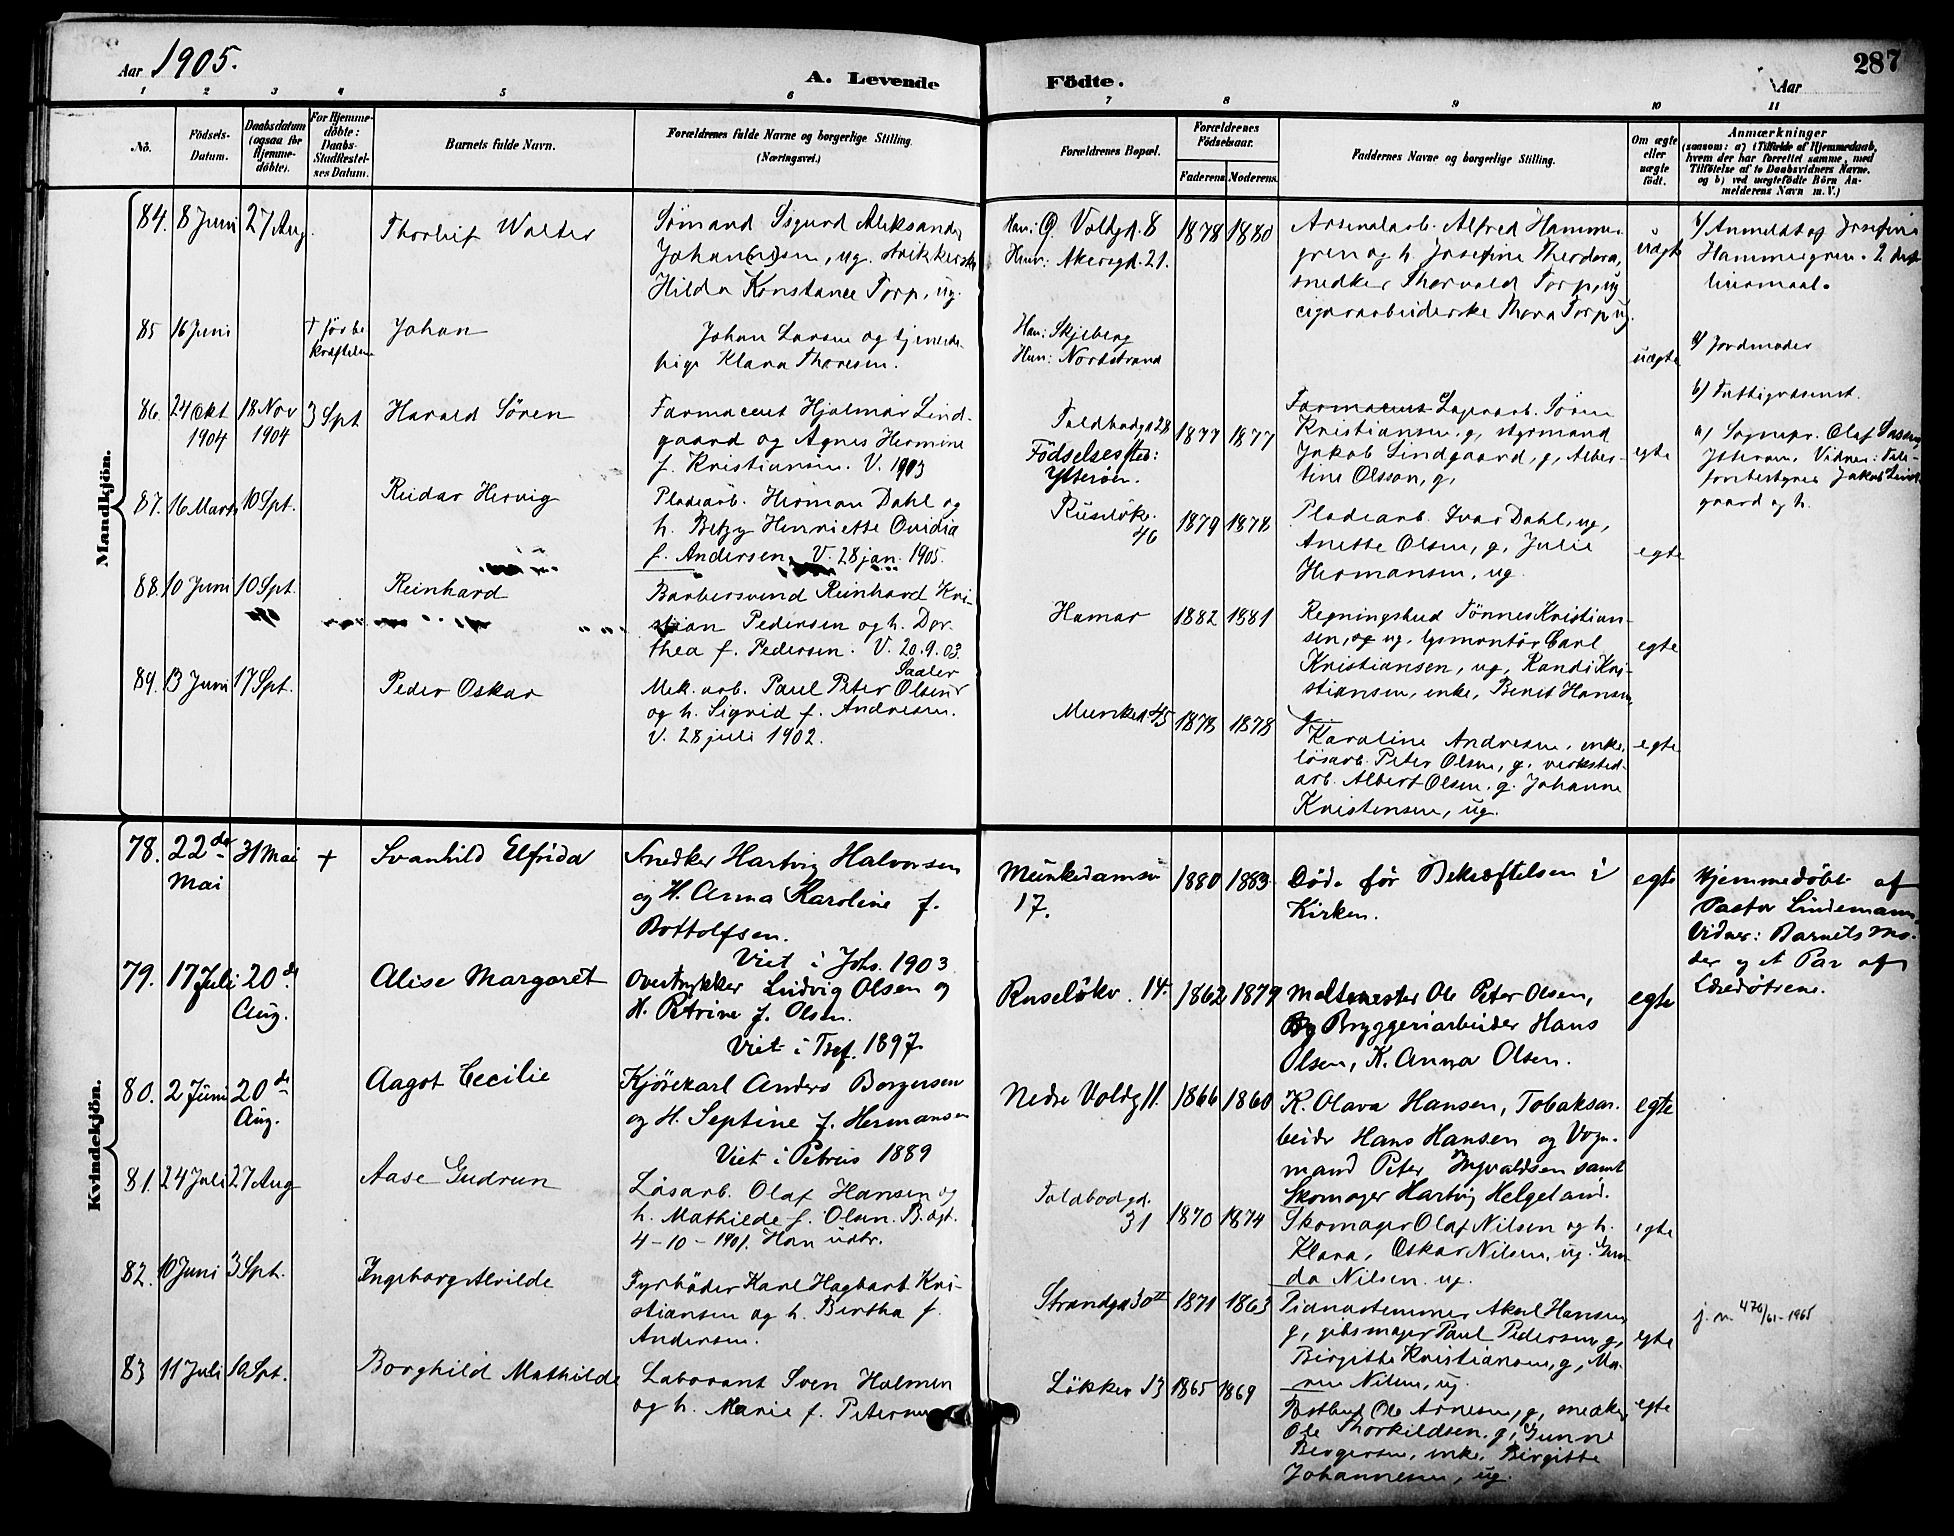 Aar 1905.
A. Levende Födte.
287
Aar
1 2 3 4 5 6 7 8 9 10 11
No.
Födsels-Datum.
Daabsdatum (ogsaa for Hjemme-döbte).
For Hjemme-döbte: Daabs-Stadfæstel-ses Datum.
Barnets fulde Navn.
Forældrenes fulde Navne og borgerlige Stilling.
(Næringsvei.)
Forældrenes Bopæl.
Forældrenes Födselsaar.
Faderens Moderens.
Faddernes Navne og borgerlige Stilling.
Om ægte eller uægte födt.
Anmærkninger
(saasom: a) i Tilfælde af Hjemmedaab, hvem der har forrettet samme, med Tilföielse af to Daabsvidners Navne. og b) ved uægtefödte Börn An-melderens Navn m. V.)
Mandkjön.
84. 8 Juni 27 Aug. Thorleif Walter
Sømand Sigurd Aleksander
Johan(n)sen, ug. strikkerske
Hilda Konstance Torp, ug.
Han: Ø. Voldgd. 8
Hun: Akersgd. 21.
1878 1880
Arsenalarb. Alfred Hammer-
gren og h. Josefine Theodora,
snedker Thorvald Torp, ug
cigararbeiderske Thora Torp ug.
uægte
b) Anmeldt af Josefine
Hammergren. 2
85 16 Juni † før be-
kræftelsen
Johan
Johan Larsen og tjeneste-
pige Klara Thoresen.
Han: Skjeberg
Hun: Nordstrand
uægte
a) Jordmoder
b) Fattigvæsenet.
86. 24 Okt 1904 18 Nov 1904 3 Spt Harald Sören
Farmaceut Hjalmar Lind-
gaard og Agnes Hermine
f. Kristiansen. V. 1903
Toldbodgd 28
Födselssted:
Ytterøen.
1877 1877
Farmaceut Lagerarb. Sören
Kristiansen, g, styrmand
Jakob Lindgaard, g, Alber-
tine Olsson, g,
egte
a) Sognepr. Olaf
Ytterøen. Vidner: Tele-
fonbestyrer Jakob Lind-
gaard og h.
87. 16 Marts 10 Spt. Reidar Hervig
Pladearb. Herman Dahl og
h. Betzy Henriette Ovidia
f. Andersen, V. 28 jan. 1905.
Ruseløkv.
46
1879 1878
Pladearb. Ivar Dahl, ug,
Anette Olsen, g, Julie
Hermansen, ug.
egte
88. 10 Juni 10 Spt. Reinhard
Barbersvend Reinhard Kri-
stian Pedersen og h. Dor-
thea f. Pedersen. V. 20.9.03.
Hamar
1882 1881
Regningsbud Tønnes Kristian-
sen, og ug. lysmontör Carl
Kristiansen, ug, Randi Kri-
stiansen, enke, Bernt Hansen,
g
egte
89. 13 Juni 17 Spt. Peder Oskar
Saaler
Mek. arb. Paul Peter Olsen
og h. Sigrid f. Andresen.
V. 28 juli 1902.
Munked. 45
1878 1878
Karoline Andresen, enke,
løsarb. Peter Olsen, g, verksted-
arb. Albert Olsen, g. Johanne
Kristensen, ug.
egte
Kvindekjön.
78. 22de Mai 31 Mai + Svanhild Elfrida
Snedker Hartvig Halvorsen
og H. Anna Karoline f.
Bottolfsen.
Viet i Johs. 1903
Munkedamsv
17.
1880 1883
Død før Bekræftelsen i
Kirken.
egte
Hjemmedøbt af
Pastor Lindemann
Vidner: Barnets Mo-
der og et Par af
Lærerinderne.
79. 17 Juli 20de Aug. Alise Margaret
Overtrykker Ludvig Olsen og
H. Petrine f. Olsen.
Viet i Tref. 1897
Ruseløkv. 14.
1862 1879
Maltmester Ole Peter Olsen,
Bryggeriarbeider Hans
Olsen, K. Anna Olsen.
egte
80. 2 Juni 20de Aug. Aagot Cecilie
Kjørekarl Anders Borgersen
og H. Septine f. Hermansen
Viet i Petrus 1889
Nedre Voldg 11.
1866 1860
K. Olava Hansen, Tobaksar-
beider Hans Hansen og Vogn-
mand Peter Ingvaldsen samt
Skomager Hartvig Helgeland.
egte
81. 24 Juli 27 Aug Aase Gudrun
Løsarb. Olaf Hansen og
h. Mathilde f. Olsen. B. ægt.
4-10-1901. Han udtr.
Toldbodgd.
31
1870 1874
Skomager Olaf Nilsen og h.
Klara, Oskar Nilsen, ug. Gun-
da Nilsen. ug.
egte
82. 10 Juni 3 Spt. Ingeborg Alvilde
Fyrbøder Karl Hagbart Kri-
stiansen og h. Bertha f.
Andersen.
Strandgd 30 II
1871 1863
Pianostemmer Aksel Hansen,
g, gibsmager Paul Pedersen, g,
Birgitte Kristiansen, g, Ma-
rie Nilsen, ug.
egte
j. n. 476/61-1965
83 11 Juli 10 Spt. Borghild Mathilde
Laborant Sven Holmen
og h. Marie f. Petersen
Løkkev 13
1865 1869
Postbud Ole Arnesen, g, snedker
Ole Thorkildsen, g, Gunne
Birgersen, enke, Birgitte
Johannesen, ug.
egte